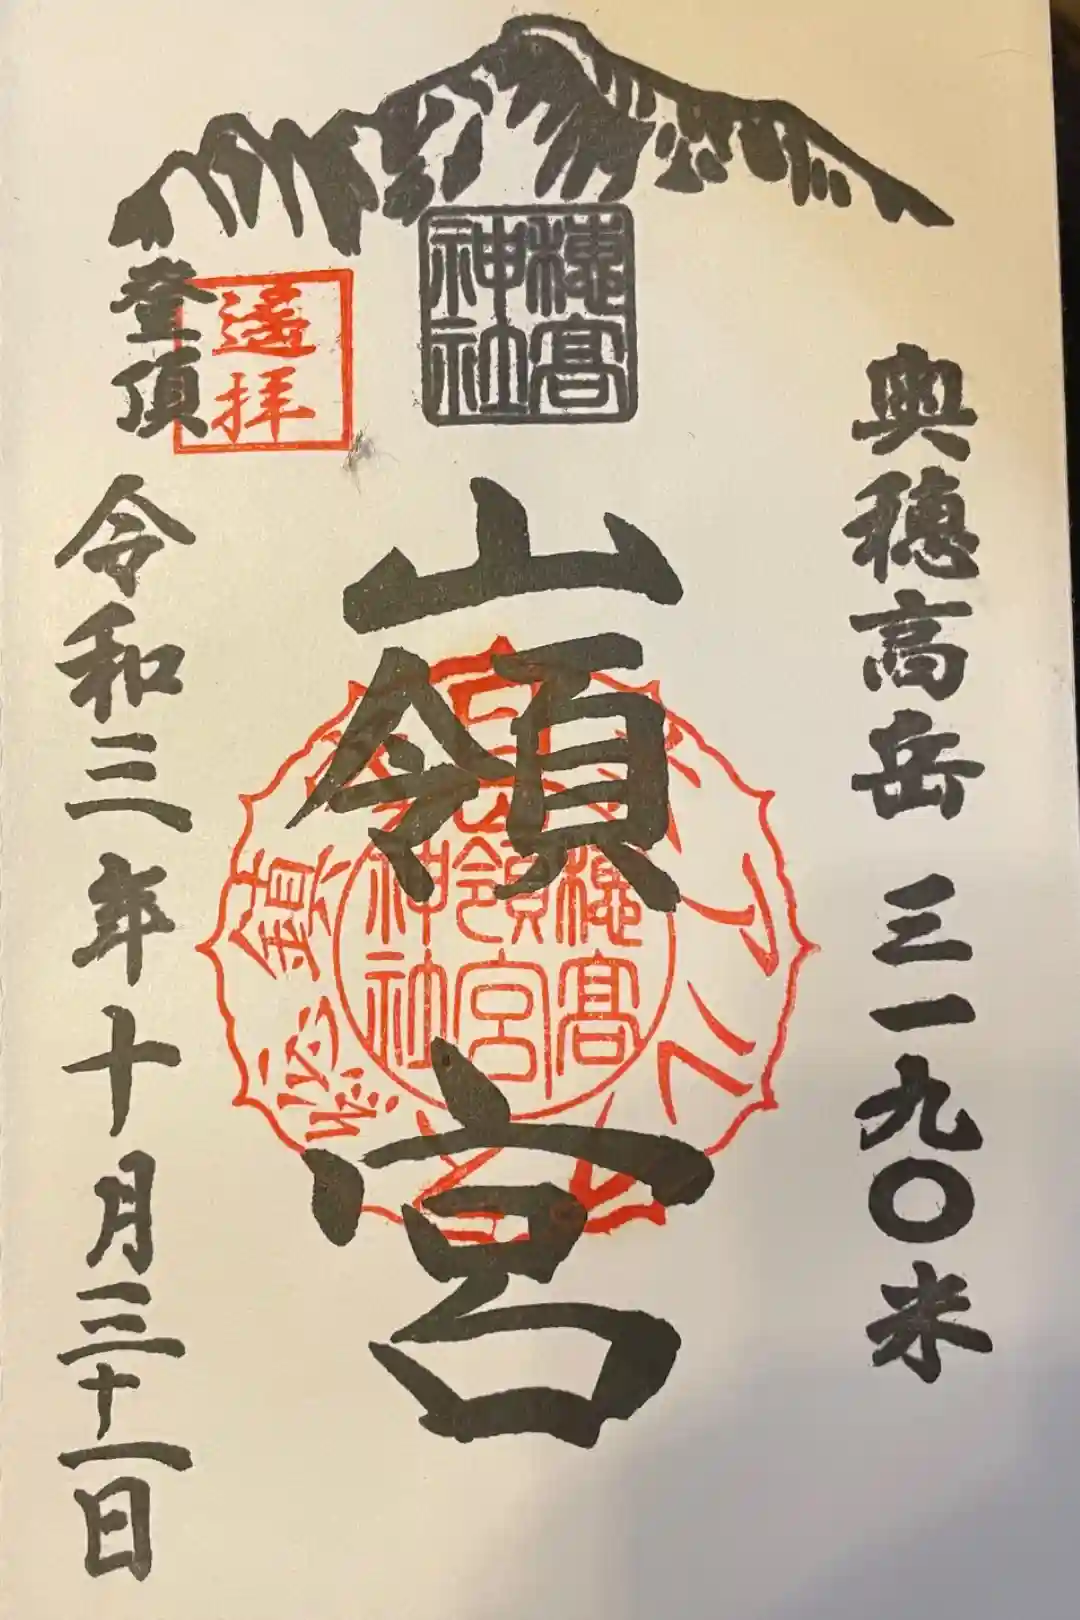 奥穂高岳 三一九〇米
穂高
神社
山嶺宮
穂高
嶺宮
神社
日本アルプス総鎮守
登頂
遥拝
令和三年十月三十一日